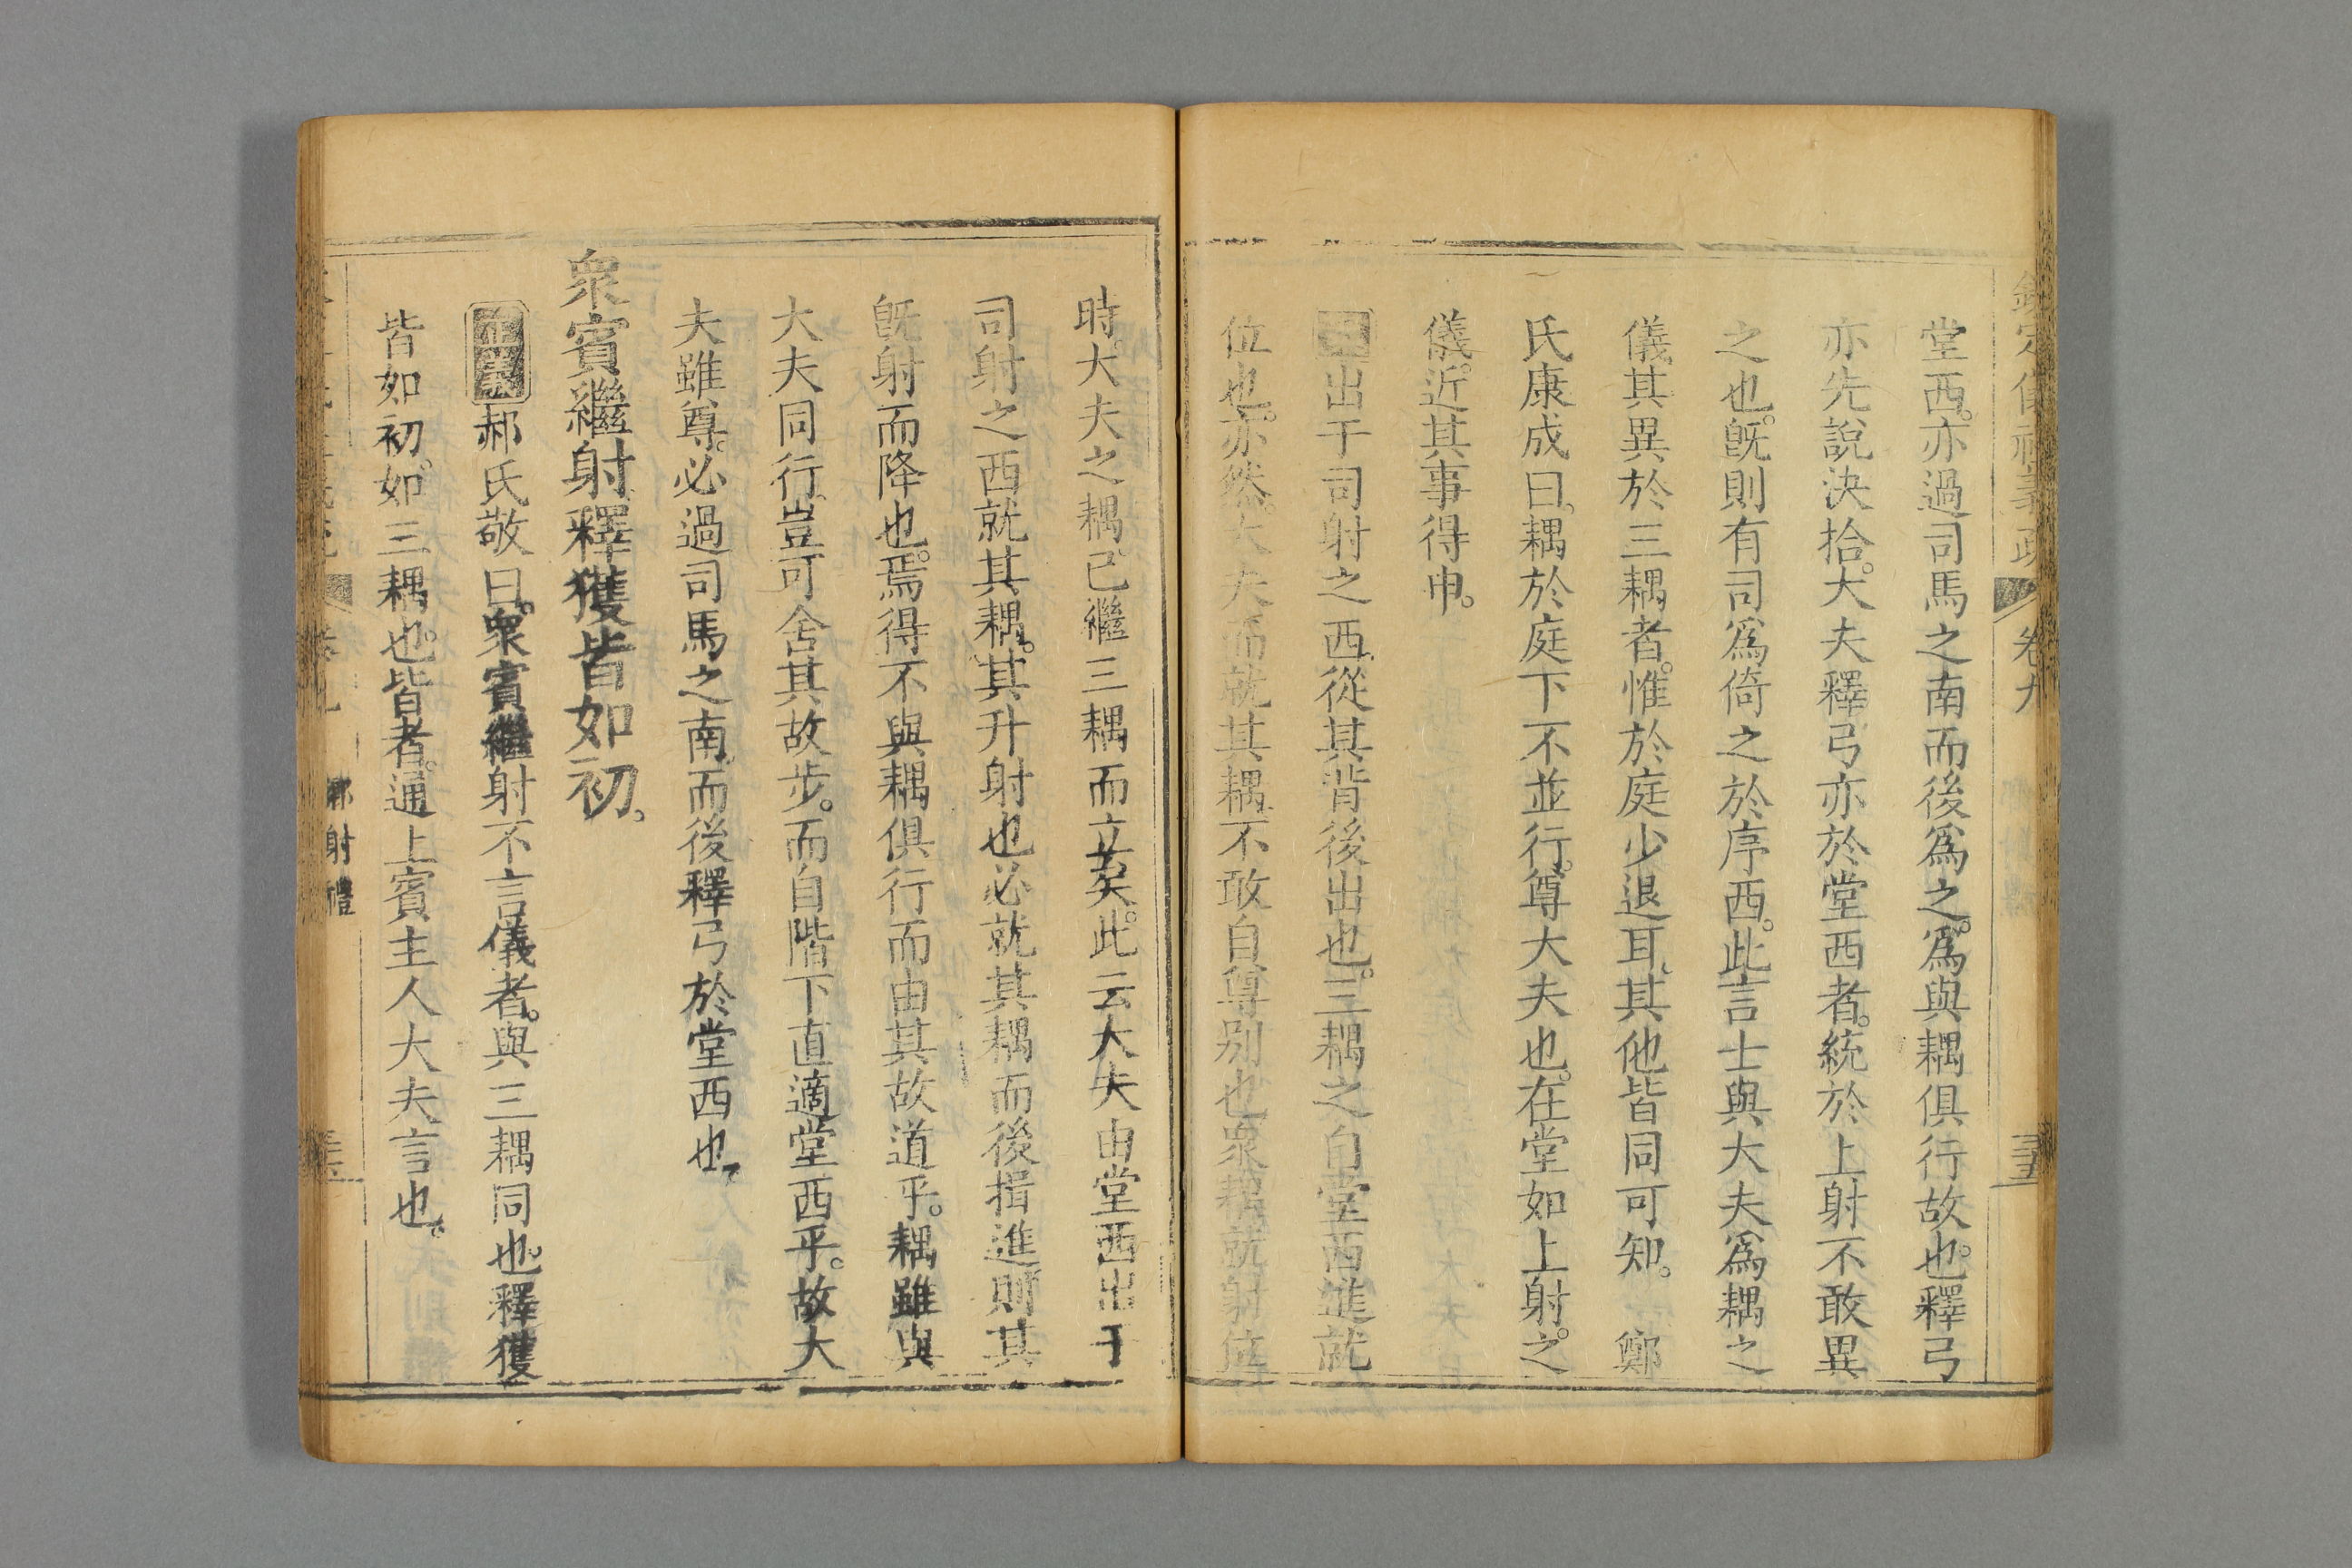 欽定儀禮義疏 卷九 三五
堂西。亦過司馬之南而後爲之。爲與耦俱行故也。釋弓
亦先說決拾。大夫釋弓亦於堂西者。統於上射不敢異
之也。旣則有司爲倚之於序西。此言士與大夫爲耦之
儀。其異於三耦者。惟於庭少退耳。其他皆同可知。 鄭
氏康成曰。耦於庭下不並行。尊大夫也。在堂如上射之
儀。近其事得申。
出于司射之西。從其背後出也。三耦之自堂西進就
位也。亦然。大夫而就其耦。不敢自尊別也。衆耦就射位
時。大夫之耦已繼三耦而立矣。此云大夫由堂西出于
司射之西就其耦。其升射也必就其耦而後揖進則其
旣射而降也。焉得不與耦俱行而由其故道乎。耦雖與
大夫同行。豈可舍其故步。而自階下直適堂西乎。故大
夫雖尊。必過司馬之南。而後釋弓於堂西也。
衆賓繼射釋獲皆如初。
正義郝氏敬曰。衆賓繼射不言儀者。與三耦同也。釋獲
皆如初。如三耦也。皆者。通上賓主人大夫言也。
鄉射禮